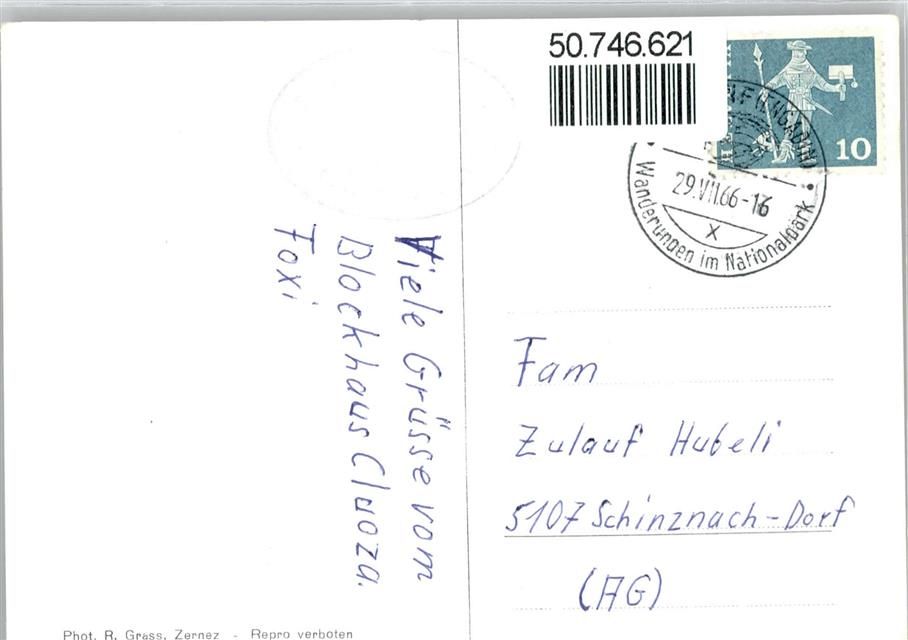 50.746.621
10
(ENGADIN)
29.VII.66-16
X
Wanderungen im Nationalpark
Viele Grüsse vom
Blockhaus Cluoza.
Foxi
Fam
Zulauf Hubeli
5107 Schinznach-Dorf
(AG)
Phot. R. Grass, Zernez - Repro verboten